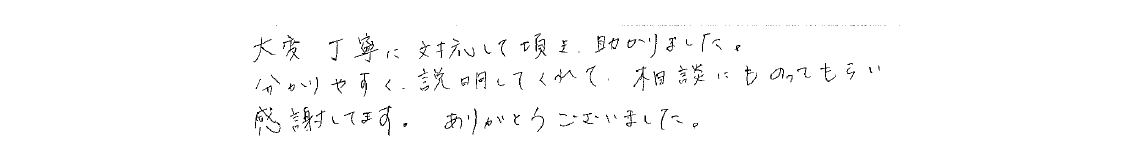 大変丁寧に対応して頂き、助かりました。
分かりやすく、説明してくれて、相談にものってもらい
感謝してます。ありがとうございました。